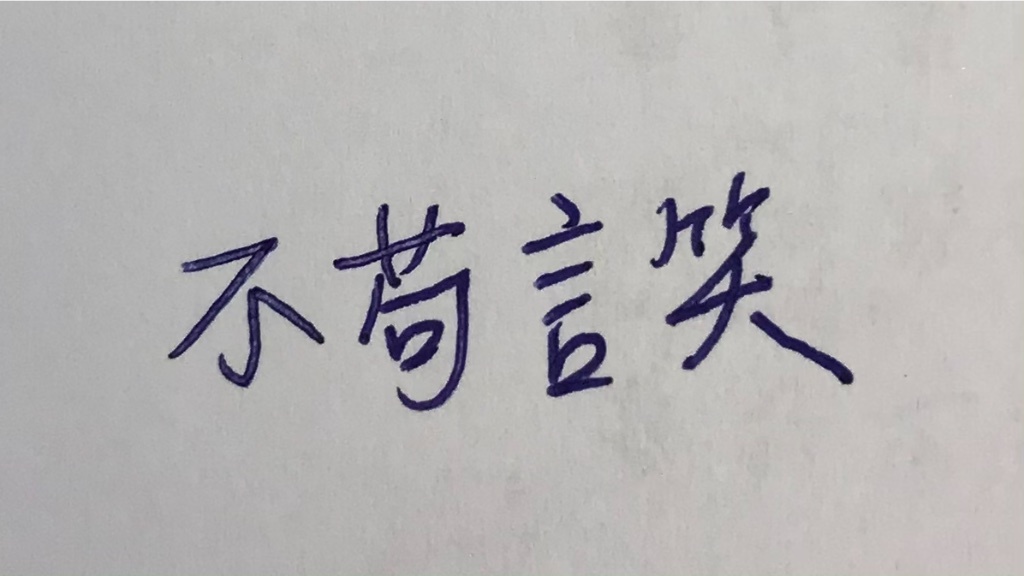 不苟言笑